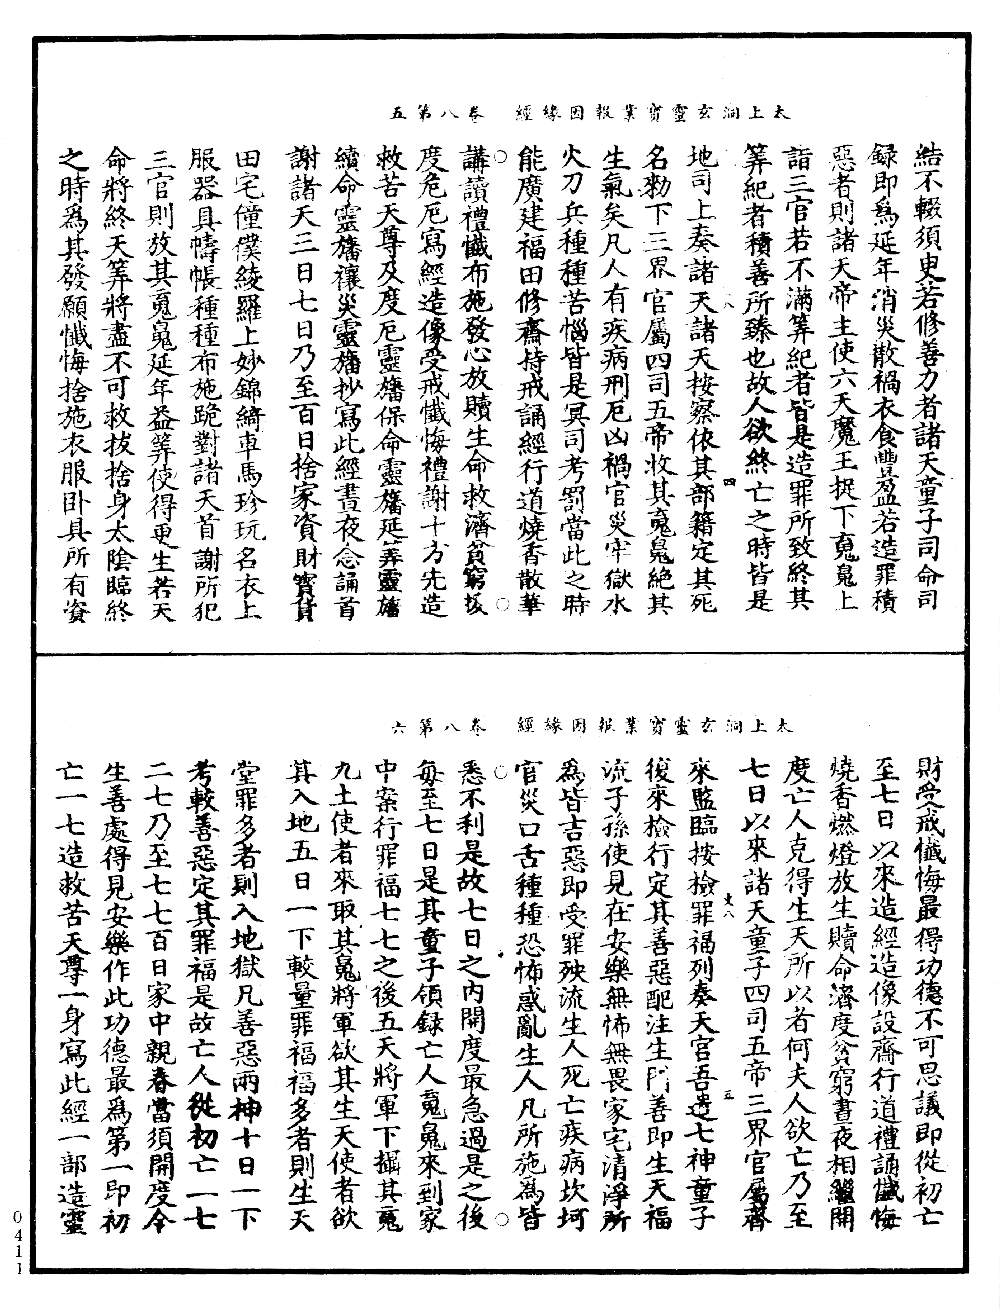 太上洞玄靈寶業報因緣經　卷八第五
結不輟須臾若修善力者諸天童子司命司
録即為延年消災散禍衣食豐盈若造罪積
惡者則諸天帝主使六天魔王捉下䰟㲋上
詣三官若不滿筭紀者皆是造罪所致終其
筭紀者積善所臻也故人欲終亡之時皆是
地司上奏諸天諸天按察依其部籍定其死
名勑下三界官屬四司五帝收其䰟㲋絶其
生氣矣凡人有疾病刑厄凶禍官災牢獄水
火刀兵種種苦惱皆是冥司考罰當此之時
能廣建福田修齋持戒誦經行道燒香散華
講讀禮懺布施發心放贖生命救濟貧窮拔
度危厄寫經造像受戒懺悔禮謝十方先造
救苦天尊及度厄靈旛保命靈旛延筭靈旛
續命靈旛禳災靈旛抄寫此經晝夜念誦首
謝諸天三日七日乃至百日捨家資財寳貨
田宅僮僕綾羅上妙錦綺車馬珍玩名衣上
服器具幬帳種種布施跪對諸天首謝所犯
三官則放其䰟㲋延年益筭使得更生若天
命將終天筭將盡不可救拔捨身太陰臨終
之時為其發願懺悔捨施衣服卧具所有資
太上洞玄靈寶業報因緣經　卷八第六
財受戒懺悔最得功德不可思議即從初亡
至七日以來造經造像設齋行道禮誦懺悔
燒香燃燈放生贖命濟度貧窮晝夜相繼開
度亡人克得生天所以者何夫人欲亡乃至
七日以來諸天童子四司五帝三界官屬齊
來監臨按檢罪福列奏天宫吾遣七神童子
復來檢行定其善惡配注生門善即生天福
流子孫使見在安樂無怖無畏家宅清淨所
為皆吉惡即受罪殃流生人死亡疾病坎坷
官災口舌種種恐怖惑亂生人凡所施為皆
悉不利是故七日之内開度最急過是之後
毎至七日是其童子領録亡人䰟㲋來到家
中案行罪福七七之後五天將軍下攝其䰟
九土使者來取其㲋將軍欲其生天使者欲
其入地五日一下較量罪福福多者則生天
堂罪多者則入地獄凡善惡兩神十日一下
考較善惡定其罪福是故亡人從初亡一七
二七乃至七七百日家中親眷當須開度令
生善處得見安樂作此功德最為第一即初
亡一七造救苦天尊一身寫此經一部造靈
四
五
0411